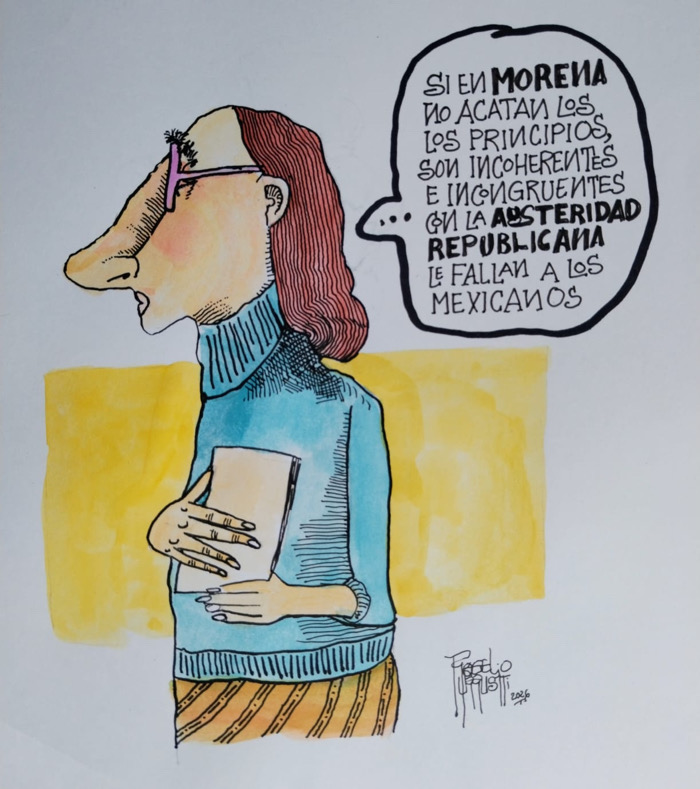 SI EN MORENA
NO ACATAN LOS
LOS PRINCIPIOS,
SON INCOHERENTES
E INCONGRUENTES
CON LA AUSTERIDAD
REPUBLICANA
LE FALLAN A LOS
MEXICANOS
2026